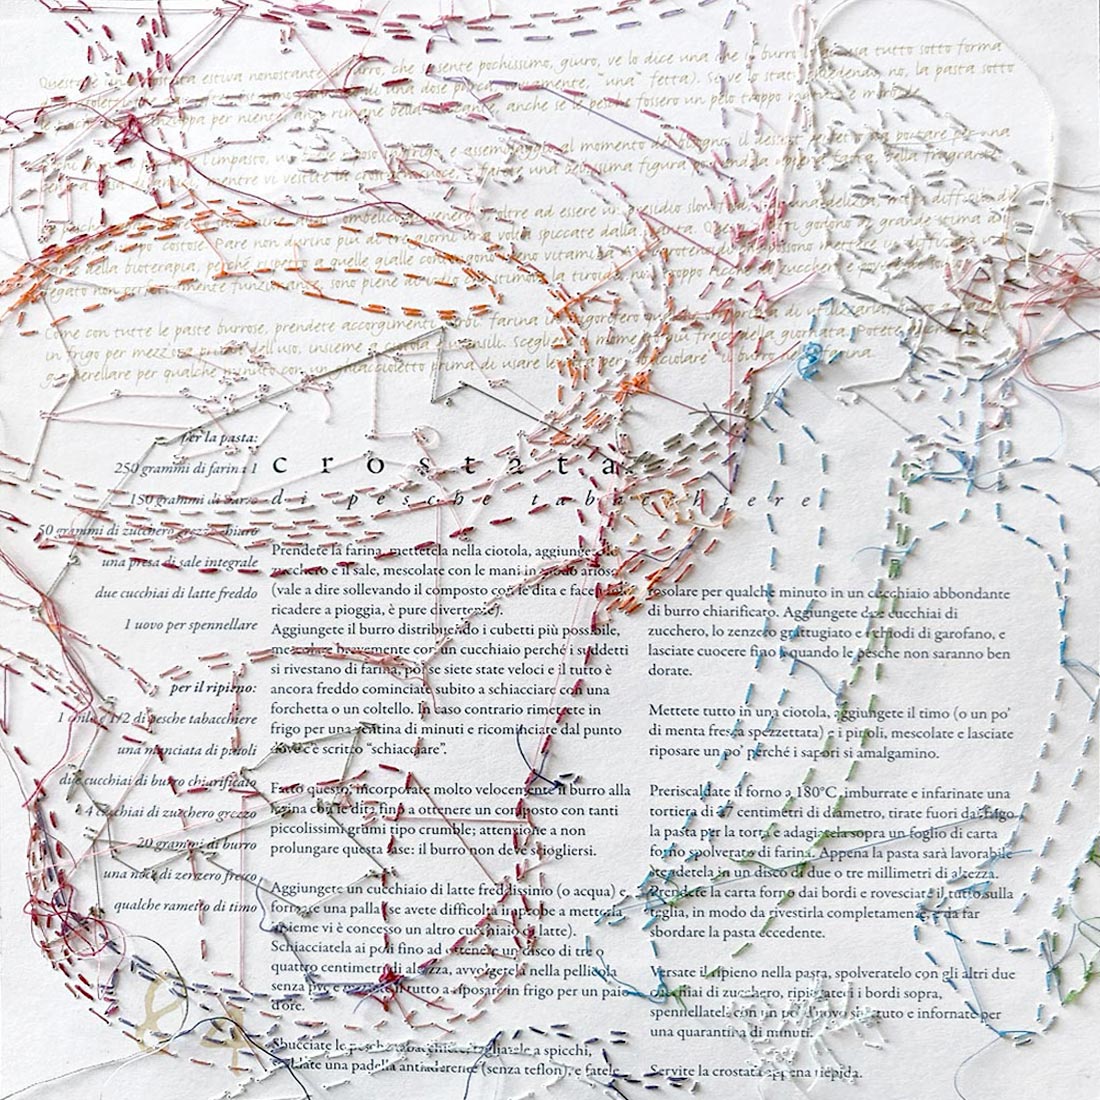 che si sente pochissimo, giuro, ve lo dice una che il burro lo usa tutto sotto forma
"una" fetta). Se ve lo state chiedendo, no, la pasta sotto
anche se le pesche fossero un pelo troppo mature e morbide
l'impasto, un bel riposo in frigo, e assemblaggio al momento del bisogno, il dessert perfetto da portare per una
mentre vi vestite da crostata una bellissima figura della fragrante
ombelico di venere oltre ad essere un presidio slow food, sono una delizia, ma di difficile
costose. Pare non durino più di tre giorni una volta spiccate dalla pianta. grande stima
della bioterapia, perché rispetto a quelle gialle contengono meno vitamina mettere in difficoltà un
fegato non perfettamente funzionante, sono piene di iodio e stimola la tiroide, non troppo ricche di zuccheri
Come con tutte le paste burrose, prendete accorgimenti farina in frigorifero prima di utilizzarla,
in frigo per mezz'ora prima dell'uso, insieme a ciotola e utensili. Scegliete il momento più fresco della giornata. Potete
per qualche minuto con un ghiaccioletto prima di usare le dita per "sbriciolare" il burro nella farina.
per la pasta:
250 grammi di farina 1
150 grammi di burro
50 grammi di zucchero grezzo chiaro
una presa di sale integrale
due cucchiai di latte freddo
1 uovo per spennellare
per il ripieno:
1 chilo e 1/2 di pesche tabacchiere
una manciata di pinoli
due cucchiai di burro chiarificato
4 cucchiai di zucchero grezzo
20 grammi di burro
una noce di zenzero fresco
qualche rametto di timo
crostata
di pesche tabacchiere
Prendete la farina, mettetela nella ciotola, aggiungete lo
zucchero e il sale, mescolate con le mani in modo arioso
(vale a dire sollevando il composto con le dita e facendolo
ricadere a pioggia, è pure divertente).
Aggiungete il burro distribuendo i cubetti più possibile,
mescolate brevemente con un cucchiaio perché i suddetti
si rivestano di farina, poi se siete state veloci e il tutto è
ancora freddo cominciate subito a schiacciare con una
forchetta o un coltello. In caso contrario rimettete in
frigo per una decina di minuti e ricominciate dal punto
dove c'è scritto "schiacciare".
Fatto questo, incorporate molto velocemente il burro alla
farina con le dita, fino a ottenere un composto con tanti
piccolissimi grumi tipo crumble; attenzione a non
prolungare questa fase: il burro non deve sciogliersi.
Aggiungete un cucchiaio di latte freddissimo (o acqua) e
formate una palla (se avete difficoltà improbe a metterla
insieme vi è concesso un altro cucchiaio di latte).
Schiacciatela ai poli fino ad ottenere un disco di tre o
quattro centimetri di altezza, avvolgetela nella pellicola
senza pvc e mettete il tutto a riposare in frigo per un paio
d'ore.
Sbucciate le pesche tabacchiere, tagliatele a spicchi,
scaldate una padella antiaderente (senza teflon), e fatele
rosolare per qualche minuto in un cucchiaio abbondante
di burro chiarificato. Aggiungete due cucchiai di
zucchero, lo zenzero grattugiato e i chiodi di garofano, e
lasciate cuocere fino a quando le pesche non saranno ben
dorate.
Mettete tutto in una ciotola, aggiungete il timo (o un po'
di menta fresca spezzettata) e i pinoli, mescolate e lasciate
riposare un po' perché i sapori si amalgamino.
Preriscaldate il forno a 180°C, imburrate e infarinate una
tortiera di 27 centimetri di diametro, tirate fuori dal frigo
la pasta per la torta e adagiatela sopra un foglio di carta
forno spolverato di farina. Appena la pasta sarà lavorabile
stendetela in un disco di due o tre millimetri di altezza.
Prendete la carta forno dai bordi e rovesciate il tutto sulla
teglia, in modo da rivestirla completamente, e da far
sbordare la pasta eccedente.
Versate il ripieno nella pasta, spolveratelo con gli altri due
cucchiai di zucchero, ripiegate i bordi sopra,
spennellateli con un po' d'uovo sbattuto e infornate per
una quarantina di minuti.
Servite la crostata appena tiepida.